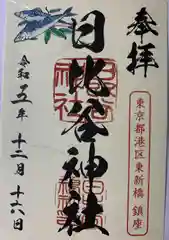 奉拝
東京都港区東新橋 鎮座
日比谷神社
令和五年十二月十六日